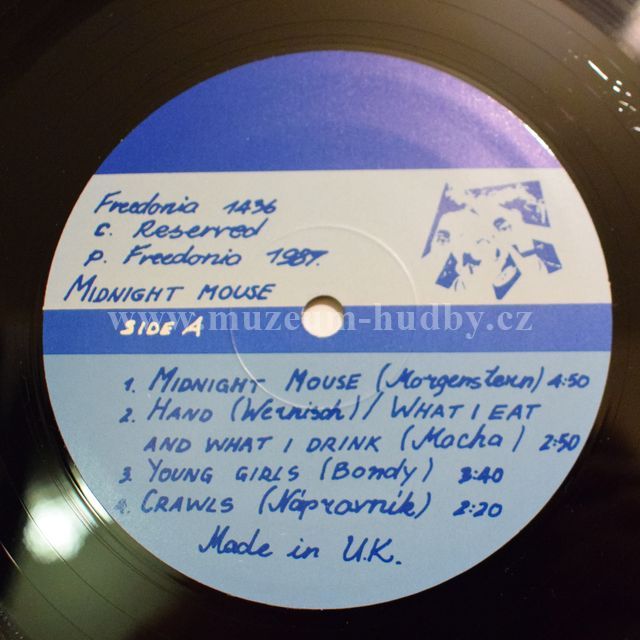 Freedonia 1436
C. Reserved
P. Freedonia 1987.
MIDNIGHT MOUSE
SIDE A
www.muzeum-hudby.cz
1. MIDNIGHT MOUSE (Morgenstern) 4:50
2. HAND (Wernisch) / WHAT I EAT
AND WHAT I DRINK (Macha) 2:50
3. YOUNG GIRLS (Bondy) 3:40
4. CRAWLS (Nápravník) 2:20
Made in U.K.